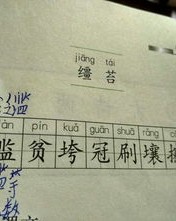 jiāng tái
缰 苔
pín kuǎ guān shuā rǎng
滥 贫 垮 冠 刷 壤
等
数